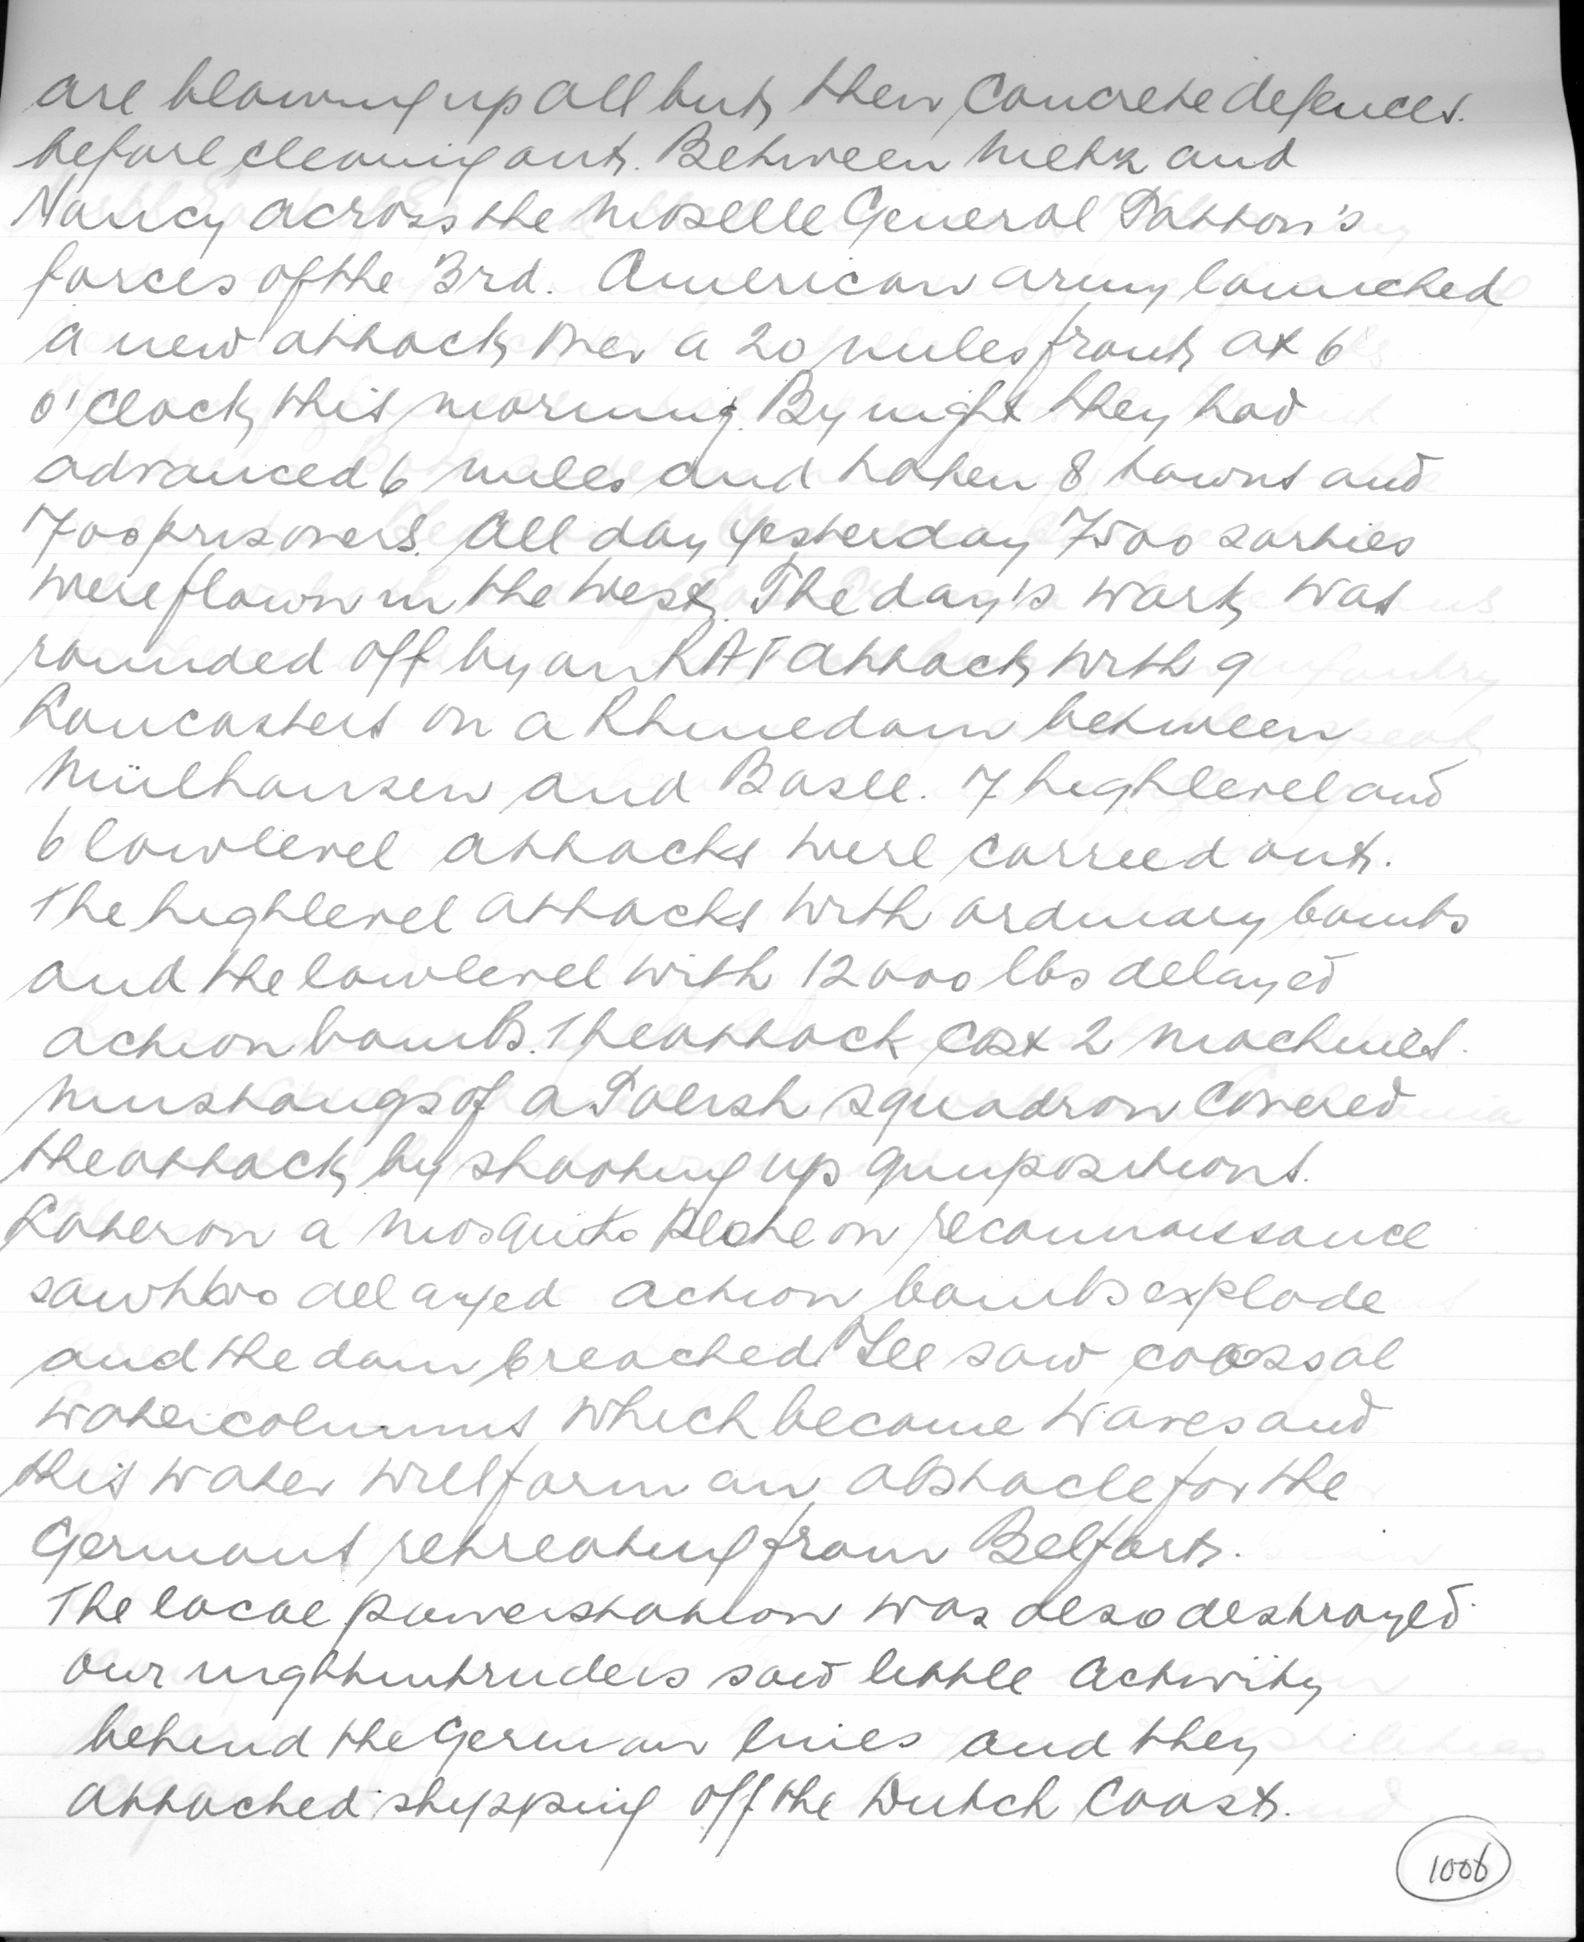 are blowing up all but their concrete defences.
before clearing out. Between Metz and
Nancy across the Moselle General Patton's
forces of the 3rd. American army launched
a new attack over a 20 miles front at 6
o'clock this morning. By night they had
advanced 6 miles and taken 8 towns and
700 prisoners. All day yesterday 7500 sorties
were flown in the West. The day's work was
rounded off by an RAF attack with 9
Lancasters on a Rhinedam between
Mülhausen and Basle. 7 highlevel and
6 lowlevel attacks were carried out.
The highlevel attacks with ordinary bombs
and the lowlevel with 12000 lbs delayed
action bombs. The attack cost 2 machines.
Mustangs of a Polish squadron covered
the attack by shooting up gunpositions.
Later on a Mosquito on reconnaissance
saw two delayed action bombs explode
and the dam breached. He saw colossal
watercolumns which became waves and
this water will form an obstacle for the
Germans retreating from Belfort.
The local powerstation was also destroyed.
our nightintruders saw little activity
behind the German lines and they
attacked shipping off the Dutch Coast.
1006